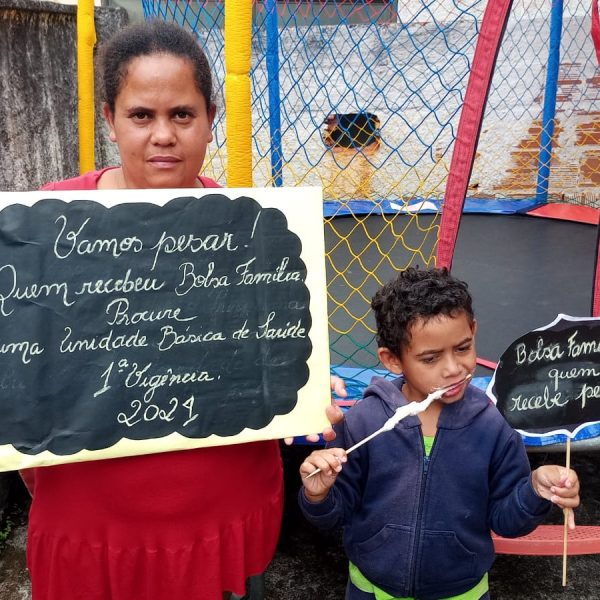 Vamos pesar!
Quem recebeu Bolsa Família.
Procure
uma Unidade Básica de Saúde
1ª Vigência.
2021
Bolsa Famí
quem
recebe pe